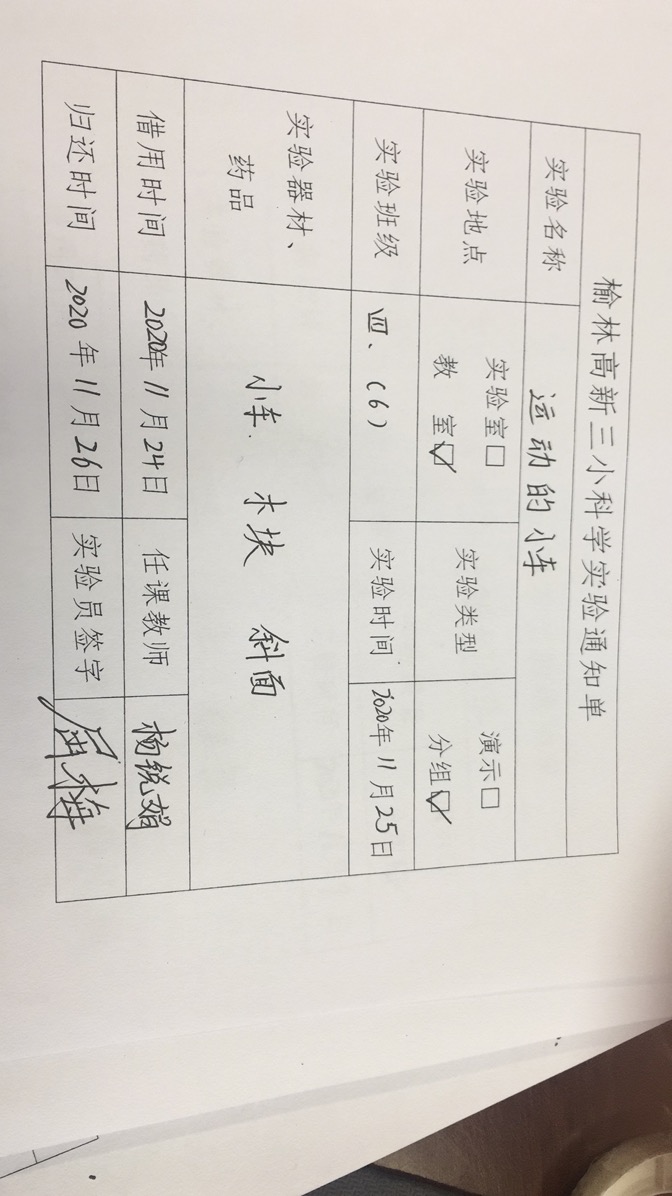 榆林高新三小科学实验通知单
实验名称 运动的小车
实验地点 实验室□ 教 室☑ 实验类型 演示□ 分组☑
实验班级 四、(6) 实验时间 2020年11月25日
实验器材、药品 小车. 木块 斜面
借用时间 2020年11月24日 任课教师 杨锐娟
归还时间 2020年11月26日 实验员签字